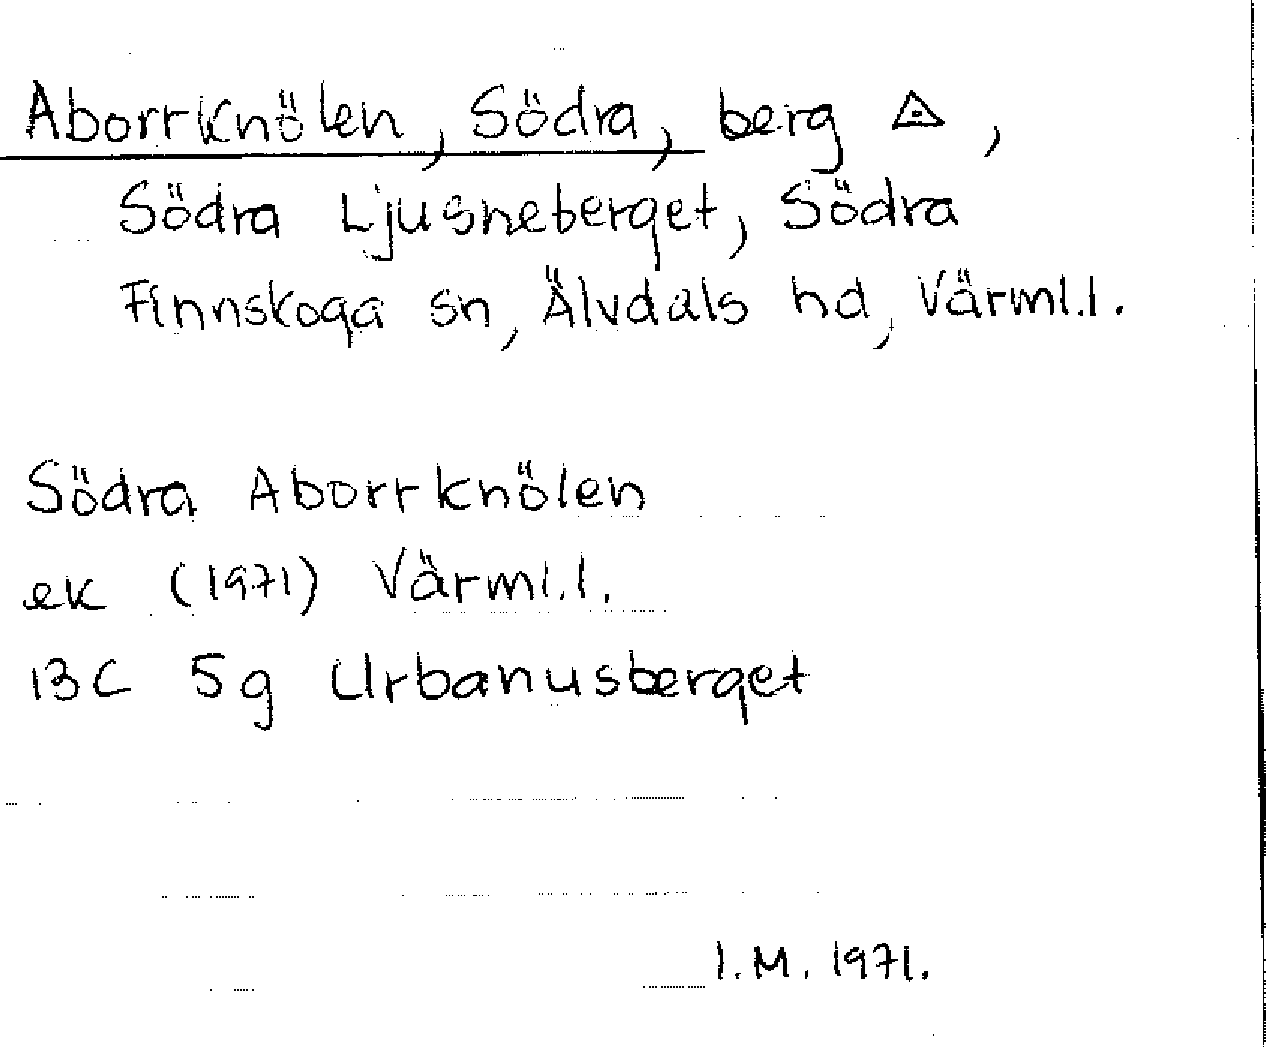 Aborrknölen, Södra, berg △,
Södra Ljusneberget, Södra
Finnskoga sn, Älvdals hd, Värml.l.
Södra Aborrknölen
ek (1971) Värml.l.
13C 5g Urbanusberget
I.M. 1971.